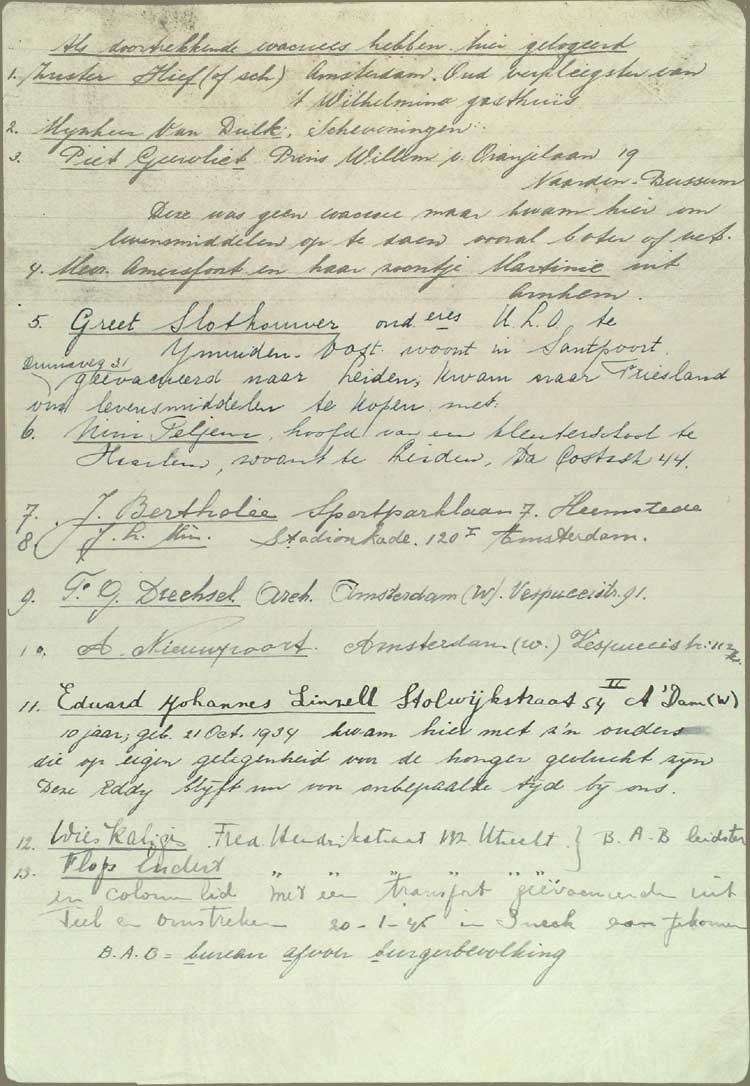 Als doortrekkende evacuees hebben hier gelogeerd
1. Zuster Hief (of sch) Amsterdam. Oud verpleegster van
't Wilhelmina gasthuis
2. Mynheer Van Dulk, Scheveningen.
3. Piet Gervliet Prins Willem v. Oranjelaan 19
Naarden-Bussum
Deze was geen evacuee maar kwam hier om
levensmiddelen op te doen vooral boter of vet.
4. Mevr. Amersfoort en haar zoontje Martinie uit
Arnhem.
5. Greet Slothouwer ond.eres U.L.O. te
Ymuiden-Oost. woont in Santpoort,
Duinweg 31
geëvacueerd naar Leiden, kwam naar Friesland
om levensmiddelen te kopen met:
6. Nini Feljem, hoofd van een kleuterschool te
Haarlem, woont te Leiden, Da Costastr 44.
7. J. Bertholée Sportparklaan 7. Heemstede
8. J. L. Stadionkade. 120 I Amsterdam.
9. F. G. Drechsel Arch. Amsterdam (W). Vespuccistr. 91.
10. A. Nieuwpoort. Amsterdam (W.) Vespuccistr.
11. Eduard Johannes Linzell Stolwijkstraat 54 II A'Dam (W)
10 jaar; geb. 21 Oct. 1934 kwam hier met z'n ouders
die op eigen gelegenheid voor de honger gevlucht zyn
Deze Eddy blyft nu voor onbepaalde tyd by ons.
12. Wies Kalizis Fred. Hendrikstraat Utrecht } B.A.B leidster
13. Flops Endert " " " "
en colonne lid met een transport geëvacueerden uit
Tiel en Omstreken 20-1-45 in Sneek aangekomen
B.A.B = bureau afvoer burgerbevolking